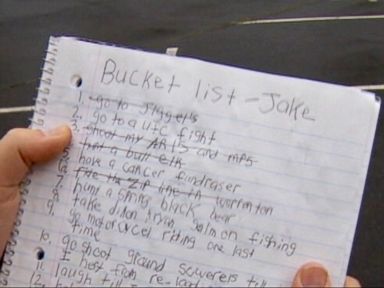 Bucket list - Jake
1. go to Jiggel's
2. go to a UFC fight
3. shoot my AR 15 and MP5
hunt a bull elk
5. have a cancer fundraiser
Zip line in Warrenton
hunt a spring black bear
take dillon salmon fishing
9. go motorcycel riding one last
time
10. go shoot ground
11. host from re-load
12. laugh till